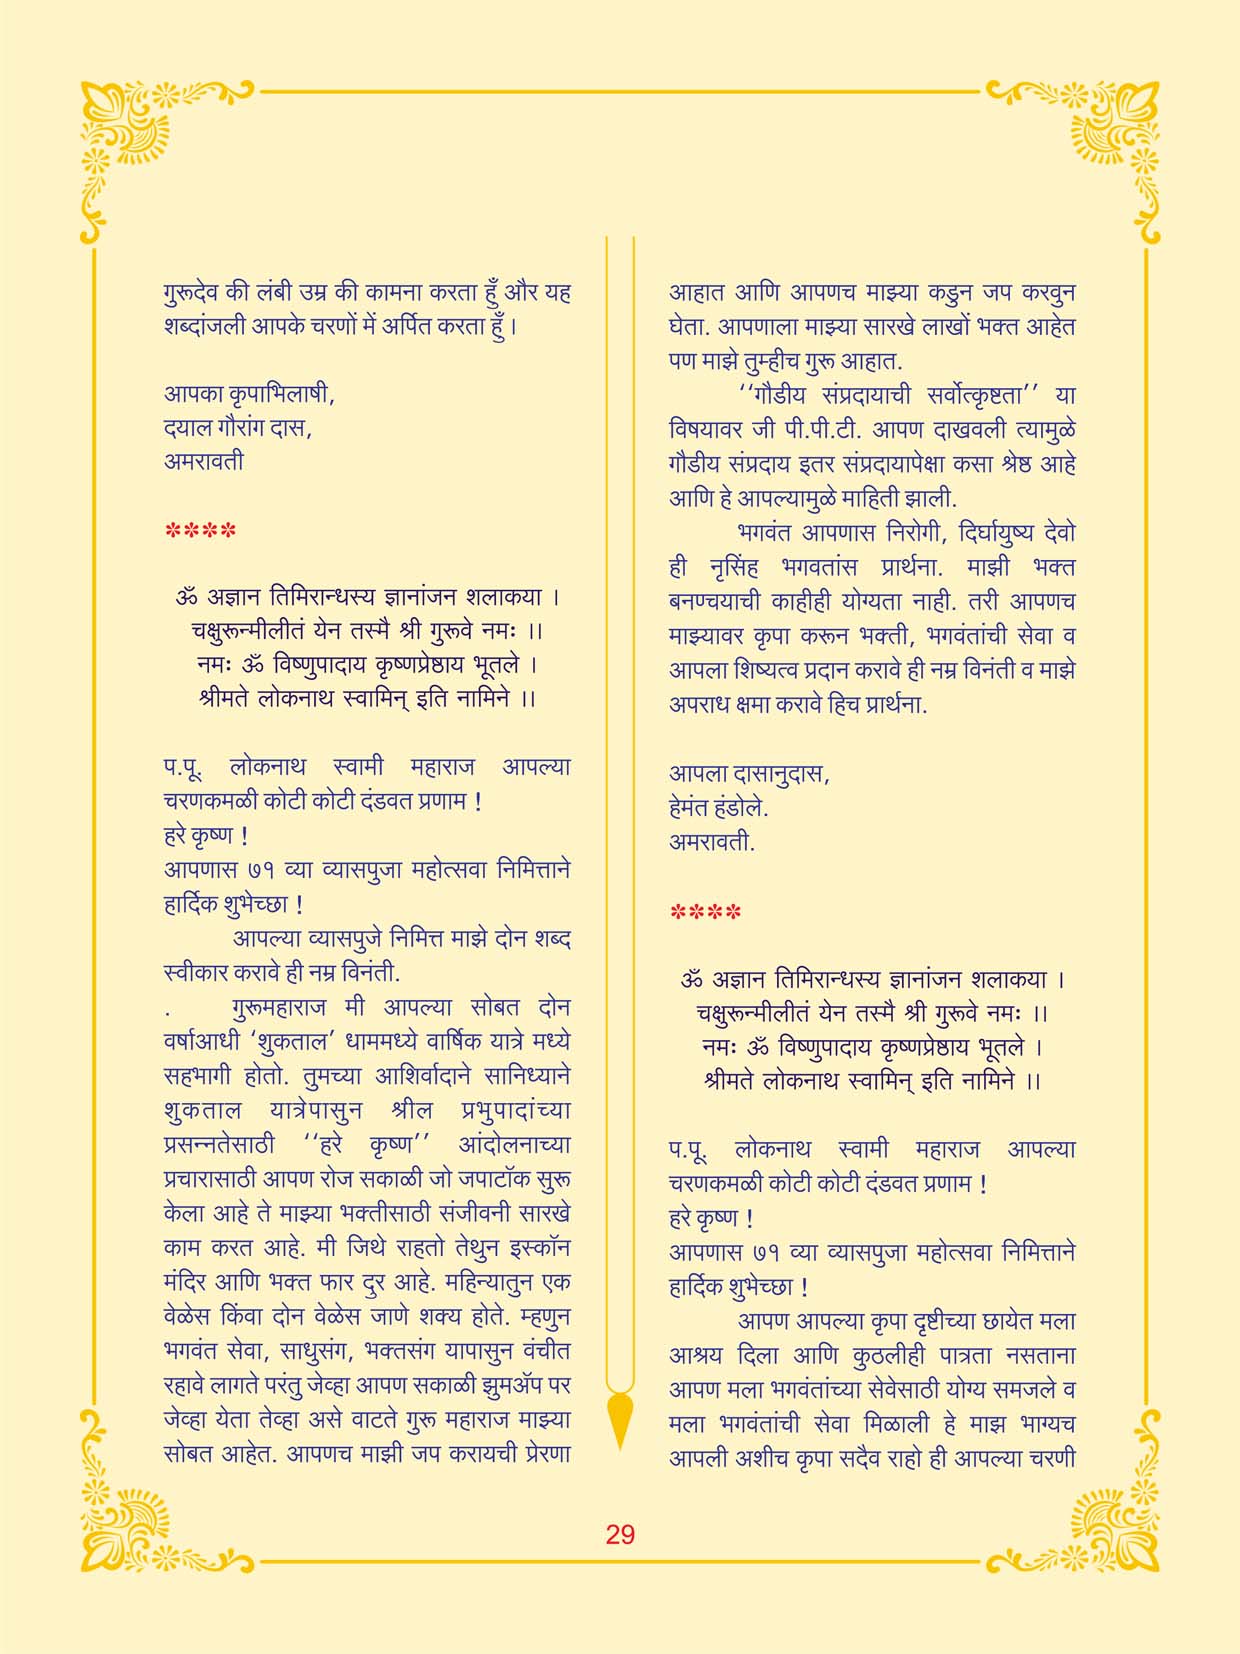 गुरूदेव की लंबी उम्र की कामना करता हुँ और यह
शब्दांजली आपके चरणों में अर्पित करता हुँ ।
आपका कृपाभिलाषी,
दयाल गौरांग दास,
अमरावती
****
ॐ अज्ञान तिमिरान्धस्य ज्ञानांजन शलाकया ।
चक्षुरून्मीलीतं येन तस्मै श्री गुरूवे नमः ।।
नमः ॐ विष्णुपादाय कृष्णप्रेष्ठाय भूतले ।
श्रीमते लोकनाथ स्वामिन् इति नामिने ।।
प.पू. लोकनाथ स्वामी महाराज आपल्या
चरणकमळी कोटी कोटी दंडवत प्रणाम !
हरे कृष्ण !
आपणास ७१ व्या व्यासपुजा महोत्सवा निमित्ताने
हार्दिक शुभेच्छा !
आपल्या व्यासपुजे निमित्त माझे दोन शब्द
स्वीकार करावे ही नम्र विनंती.
. गुरूमहाराज मी आपल्या सोबत दोन
वर्षाआधी ‘शुकताल’ धाममध्ये वार्षिक यात्रे मध्ये
सहभागी होतो. तुमच्या आशिर्वादाने सानिध्याने
शुकताल यात्रेपासुन श्रील प्रभुपादांच्या
प्रसन्नतेसाठी ‘‘हरे कृष्ण’’ आंदोलनाच्या
प्रचारासाठी आपण रोज सकाळी जो जपाटॉक सुरू
केला आहे ते माझ्या भक्तीसाठी संजीवनी सारखे
काम करत आहे. मी जिथे राहतो तेथुन इस्कॉन
मंदिर आणि भक्त फार दुर आहे. महिन्यातुन एक
वेळेस किंवा दोन वेळेस जाणे शक्य होते. म्हणुन
भगवंत सेवा, साधुसंग, भक्तसंग यापासुन वंचीत
रहावे लागते परंतु जेव्हा आपण सकाळी झुमॲप पर
जेव्हा येता तेव्हा असे वाटते गुरू महाराज माझ्या
सोबत आहेत. आपणच माझी जप करायची प्रेरणा
आहात आणि आपणच माझ्या कडुन जप करवुन
घेता. आपणाला माझ्या सारखे लाखों भक्त आहेत
पण माझे तुम्हीच गुरू आहात.
‘‘गौडीय संप्रदायाची सर्वोत्कृष्टता’’ या
विषयावर जी पी.पी.टी. आपण दाखवली त्यामुळे
गौडीय संप्रदाय इतर संप्रदायापेक्षा कसा श्रेष्ठ आहे
आणि हे आपल्यामुळे माहिती झाली.
भगवंत आपणास निरोगी, दिर्घायुष्य देवो
ही नृसिंह भगवतांस प्रार्थना. माझी भक्त
बनण्चयाची काहीही योग्यता नाही. तरी आपणच
माझ्यावर कृपा करून भक्ती, भगवंतांची सेवा व
आपला शिष्यत्व प्रदान करावे ही नम्र विनंती व माझे
अपराध क्षमा करावे हिच प्रार्थना.
आपला दासानुदास,
हेमंत हंडोले.
अमरावती.
****
ॐ अज्ञान तिमिरान्धस्य ज्ञानांजन शलाकया ।
चक्षुरून्मीलीतं येन तस्मै श्री गुरूवे नमः ।।
नमः ॐ विष्णुपादाय कृष्णप्रेष्ठाय भूतले ।
श्रीमते लोकनाथ स्वामिन् इति नामिने ।।
प.पू. लोकनाथ स्वामी महाराज आपल्या
चरणकमळी कोटी कोटी दंडवत प्रणाम !
हरे कृष्ण !
आपणास ७१ व्या व्यासपुजा महोत्सवा निमित्ताने
हार्दिक शुभेच्छा !
आपण आपल्या कृपा दृष्टीच्या छायेत मला
आश्रय दिला आणि कुठलीही पात्रता नसताना
आपण मला भगवंतांच्या सेवेसाठी योग्य समजले व
मला भगवंतांची सेवा मिळाली हे माझ भाग्यच
आपली अशीच कृपा सदैव राहो ही आपल्या चरणी
29